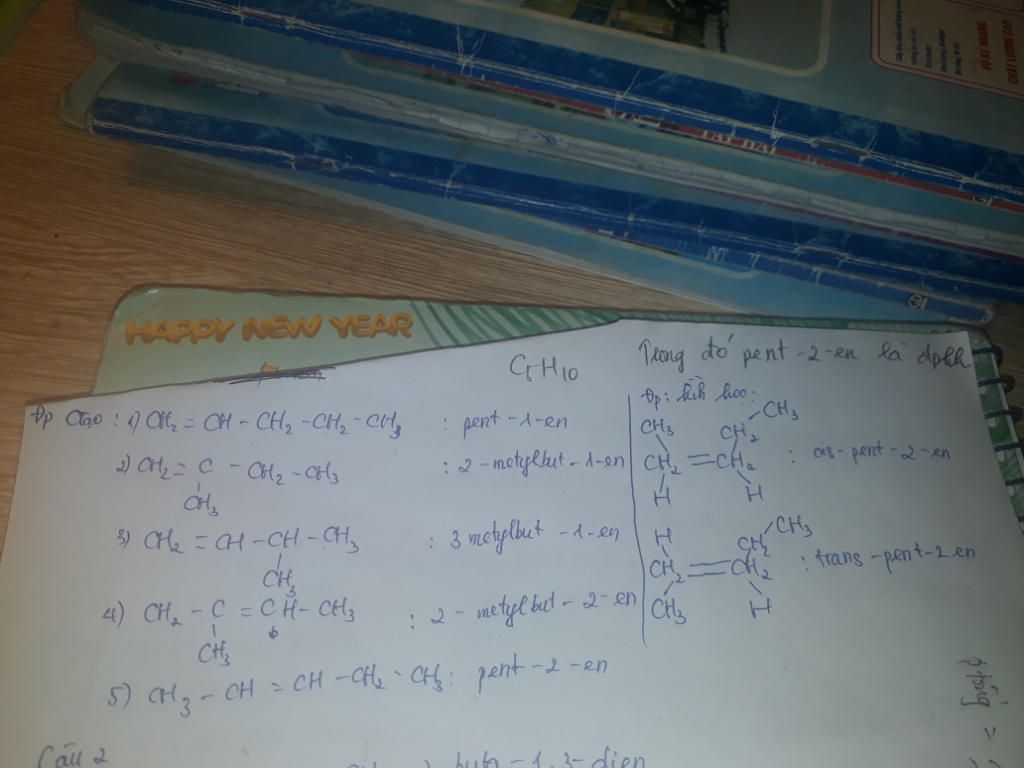 VỞ KẺ NGANG
CHẤT LƯỢNG CAO
HAPPY NEW YEAR
C5H10
Trong đó pent-2-en là đphh
Đp Ctạo : 1) CH2 = CH - CH2 - CH2 - CH3 : pent-1-en
2) CH2 = C - CH2 - CH3 : 2-metylbut-1-en
CH3
3) CH2 = CH - CH - CH3 : 3 metylbut-1-en
CH3
4) CH2 - C = CH - CH3 : 2-metylbut-2-en
CH3
5) CH3 - CH = CH - CH2 - CH3 : pent-2-en
Đp: hình học:
CH3 CH2 CH3
CH2 = CH2 : cis-pent-2-en
H H
H CH2 CH3
CH2 = CH2 : trans-pent-2 en
CH3 H
Câu 2
buta-1,3-dien